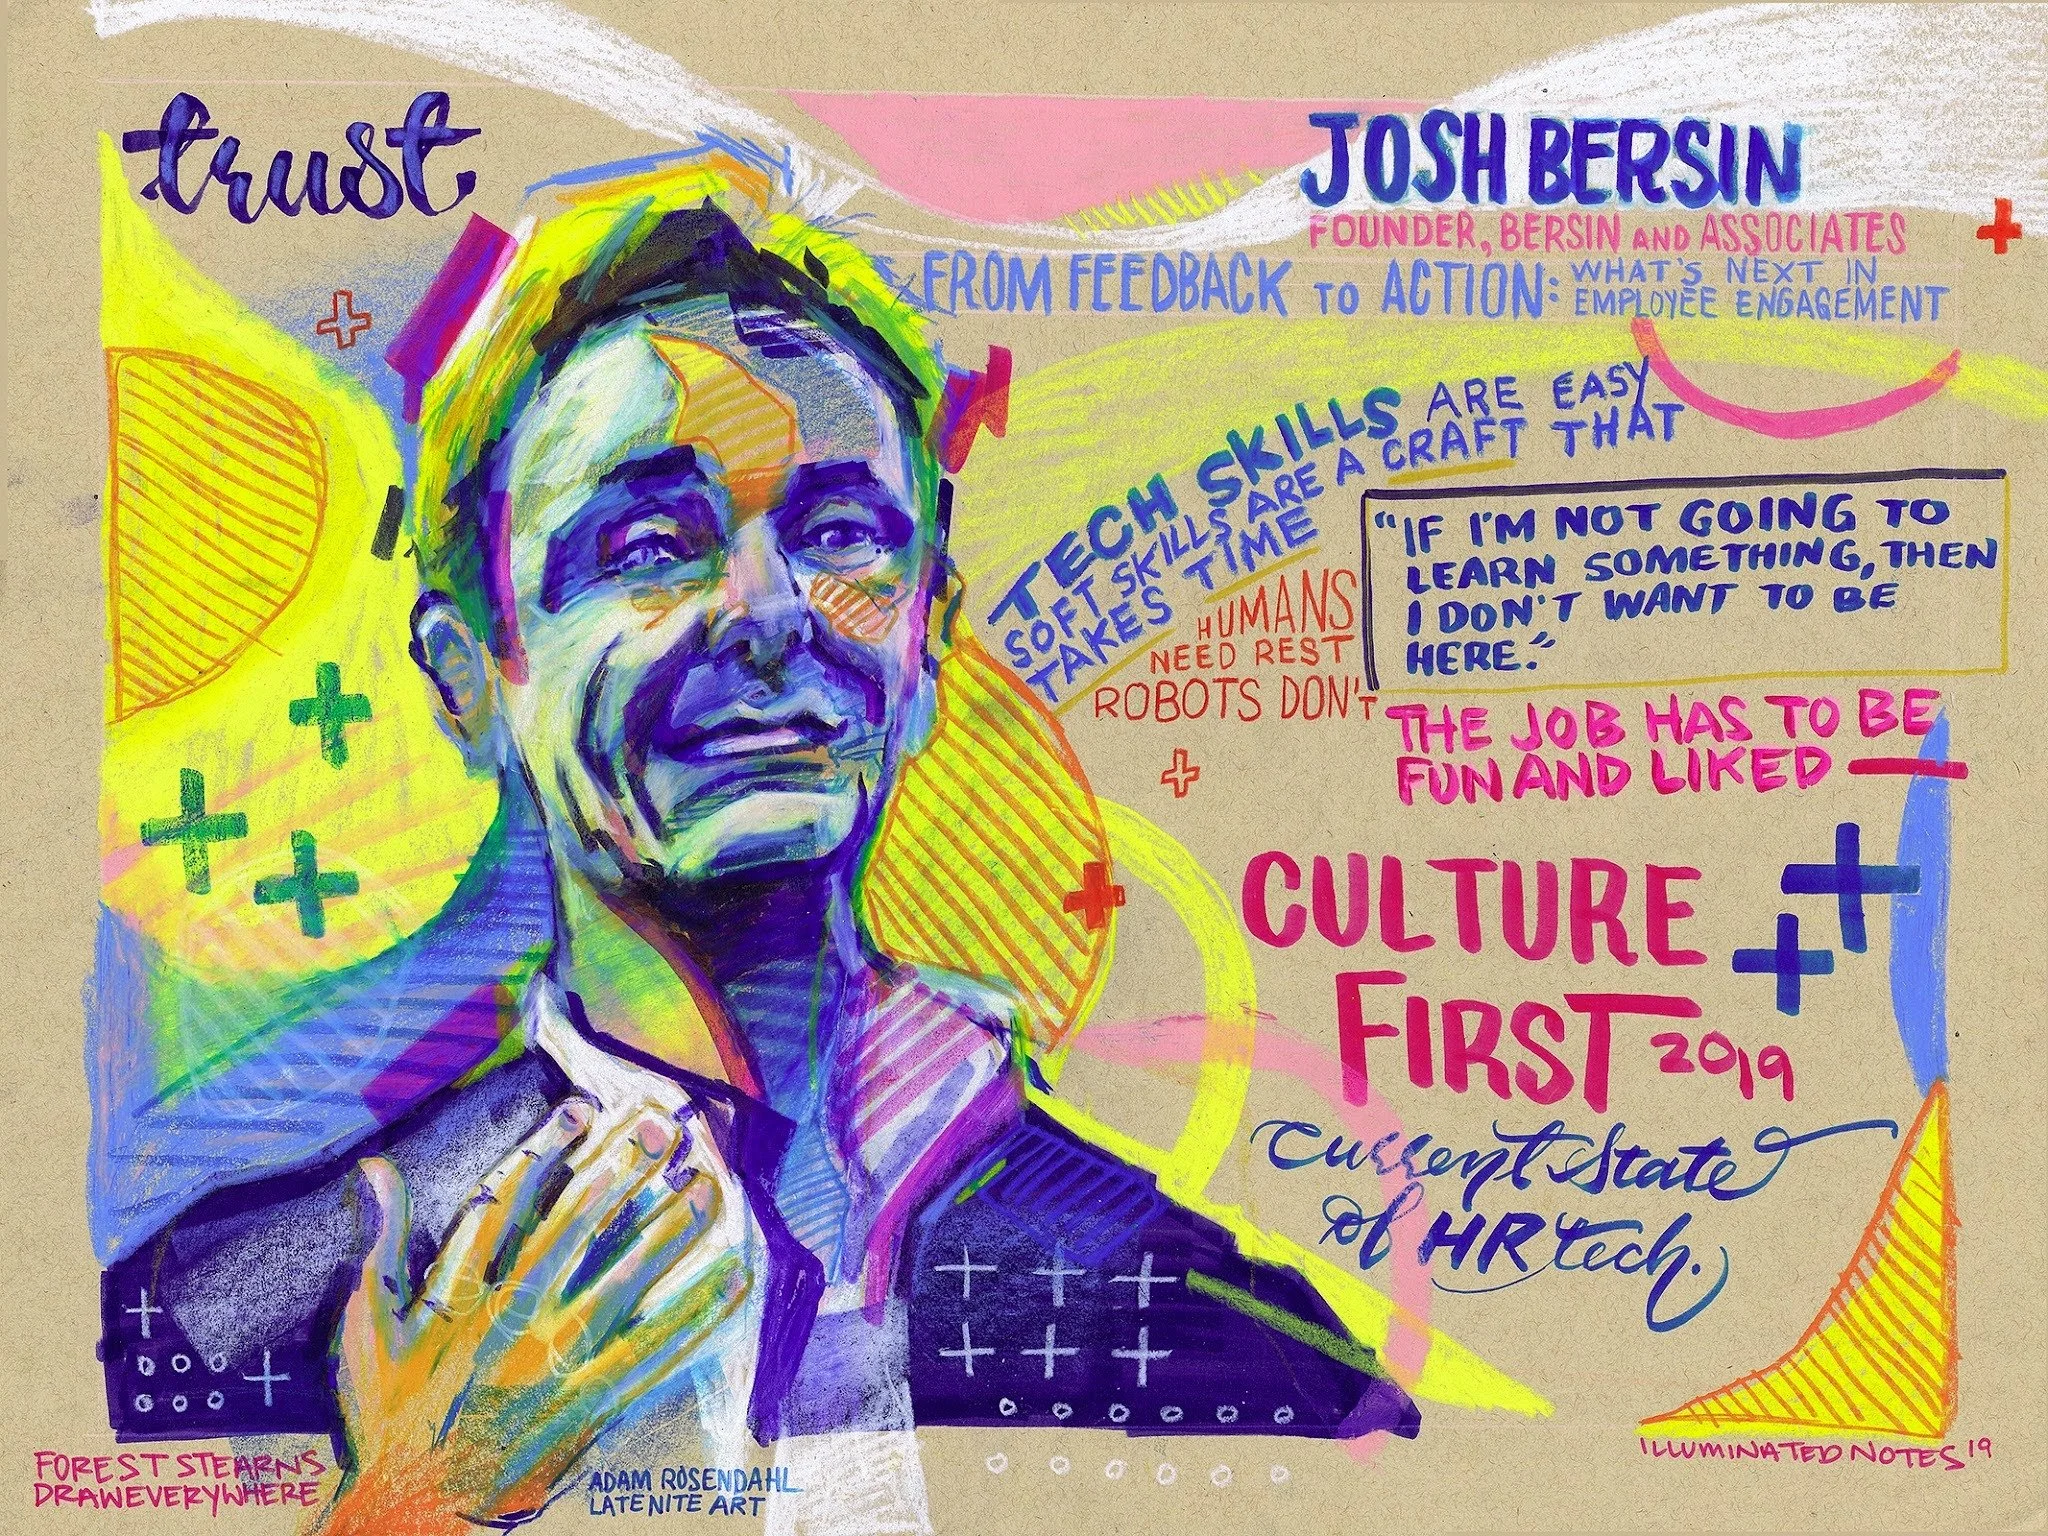 trust
JOSH BERSIN
FOUNDER, BERSIN AND ASSOCIATES
FROM FEEDBACK TO ACTION: WHAT'S NEXT IN
EMPLOYEE ENGAGEMENT
TECH SKILLS ARE EASY
SOFT SKILLS ARE A CRAFT THAT
TAKES TIME
HUMANS
NEED REST
ROBOTS DON'T
"IF I'M NOT GOING TO
LEARN SOMETHING, THEN
I DON'T WANT TO BE
HERE."
THE JOB HAS TO BE
FUN AND LIKED
CULTURE
FIRST 2019
Current State
of HR tech.
FOREST STEARNS
DRAWEVERYWHERE
ADAM ROSENDAHL
LATE NITE ART
ILLUMINATED NOTES '19